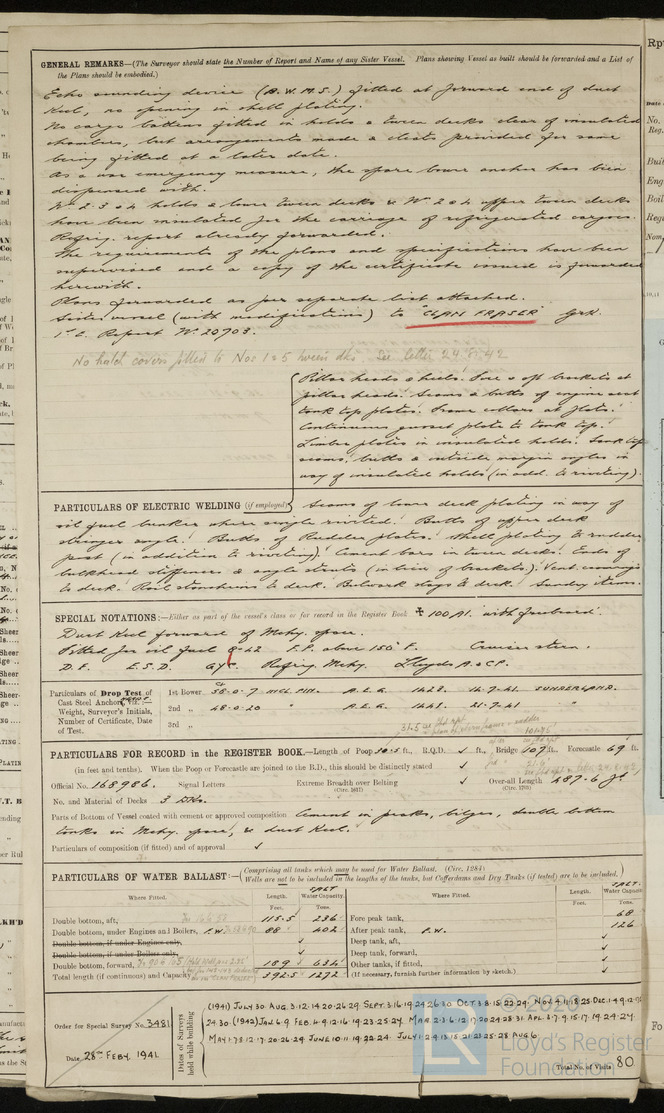 GENERAL REMARKS—(The Surveyor should state the Number of Report and Name of any Sister Vessel. Plans showing Vessel as built should be forwarded and a List of
the Plans should be embodied.)
Echo sounding device (B.W.M.S.) fitted at forward end of duct
Keel, no opening in shell plating.
No cargo battens fitted in holds & tween decks clear of insulated
chambers, but arrangements made & cleats provided for same
being fitted at a later date.
As a war emergency measure, the spare bower anchor has been
dispensed with.
Nos 2. 3 & 4 holds & lower tween decks & Nos 2 & 4 upper tween decks
have been insulated for the carriage of refrigerated cargoes.
Refrig. report already forwarded.
The requirements of the plans and specifications have been
supervised and a copy of the certificate issued is forwarded
herewith.
Plans forwarded as per separate list attached.
Sister vessel (with modifications) to "CLAN FRASER" Grk.
1st E. Report No 20703.
No hatch covers fitted to Nos 1 & 5 tween dks. See letter 24.8.42
Pillar heads & heels. Fore & aft brackets at
pillar heads. Seams & butts of engine seat
tank top plates. Frame collars at flats.
Continuous gusset plate to tank top.
Limber plates in insulated holds. Tank top
seams, butts & outside margin angles in
way of insulated holds (in add. to riveting).
PARTICULARS OF ELECTRIC WELDING (if employed) Seams of lower deck plating in way of
oil fuel bunker where single riveted. Butts of upper deck
stringer angle. Butts of Rudder plates. Shell plating to rudder
post (in addition to riveting). Cement bars in tween decks. Ends of
bulkhead stiffeners & angle struts (in lieu of brackets). Vent. coamings
to deck. Rail stanchions to deck. Bulwark stays to deck. Sundry items.
SPECIAL NOTATIONS:—Either as part of the vessel's class or for record in the Register Book ✠ 100A1. with freeboard.
Duct Keel forward of Mchy. space.
Fitted for oil fuel 8-42 F.P. above 150° F. Cruiser stern.
D.F. E.S.D. GyC. Refrig. Mchy. Lloyds A & CP.
Particulars of Drop Test of
Cast Steel Anchors, viz.:—
Weight, Surveyor's Initials,
Number of Certificate, Date
of Test.
1st Bower 58.0.7 INCL PIN. A.E.G. 1428. 14.7.41. SUNDERLAND.
2nd „ 48.0.20 „ A.E.G. 1443. 21.7.41 „
3rd „
PARTICULARS FOR RECORD in the REGISTER BOOK.—Length of Poop 30.5 ft., R.Q.D. ✓ ft., Bridge 107 ft. Forecastle 69 ft.
(in feet and tenths). When the Poop or Forecastle are joined to the B.D., this should be distinctly stated ✓
Official No. 168986. Signal Letters Extreme Breadth over Belting (Circ. 1611) ✓ Over-all Length (Circ. 1703) 487.6 ft
No. and Material of Decks 3 Dks.
Parts of Bottom of Vessel coated with cement or approved composition Cement in peaks, bilges, double bottom
tanks in Mchy. space, & duct Keel.
Particulars of composition (if fitted) and of approval ✓
PARTICULARS OF WATER BALLAST:—(Comprising all tanks which may be used for Water Ballast. (Circ. 1284)
Wells are not to be included in the lengths of the tanks, but Cofferdams and Dry Tanks (if tested) are to be included.)
Where Fitted. Length. Feet. SALT Water Capacity. Tons. Where Fitted. Length. Feet. SALT. Water Capacity Tons.
Double bottom, aft, 115.5 236 Fore peak tank, 68
Double bottom, under Engines and Boilers, F.W. 88 402 After peak tank, F.W. 126
Double bottom, if under Engines only, ✓ Deep tank, aft, ✓
Double bottom, if under Boilers only, ✓ Deep tank, forward, ✓
Double bottom, forward, 189 634 Other tanks, if fitted, ✓
Total length (if continuous) and Capacity 392.5 1272 (If necessary, furnish further information by sketch.) ✓
Order for Special Survey No. 3481
Date 28th FEBY. 1941
Dates of Surveys
held while building
(1941) JULY 30 AUG. 3.12.14.20.26.29. SEPT. 3.16.19.24.26.30. OCT 3.8.15.22.29. NOV. 4.11.18.25. DEC. 1.4.9.12.
24.30. (1942) JAN. 6.9. FEB. 4.9.12.16.19.23.25.27. MAR. 2.3.6.12.17.20.24.28.31. APL. 1.7.9.15.17.19.24.29.
MAY 1.7.8.12.17.20.26.29. JUNE 10.11.19.22.24. JULY 1.2.9.13.15.21.23.25.28 AUG 6.
Total No. of Visits 80
© 2020
LR
Lloyd's Register
Foundation